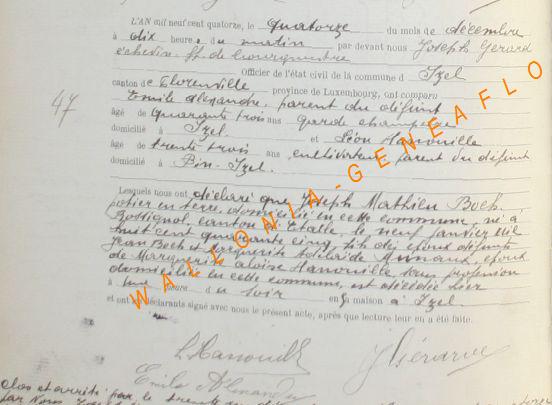 L'AN mil neuf cent quatorze, le quatorze du mois de décembre
à dix heures du matin par devant nous Joseph Gérard
échevin ff. de bourgmestre
Officier de l'état civil de la commune d Izel
canton de Florenville province de Luxembourg, ont comparu
Emile Alexandre, parent du défunt
47
âgé de quarante trois ans garde champêtre
domicilié à Izel et Léon Hanouille
âgé de trente trois ans, cultivateur, parent du défunt
domicilié à Pin-Izel.
Lesquels nous ont déclaré que Joseph Mathieu Boch
potier en terre, domicilié en cette commune, né à
Rossignol, canton d'Etalle, le neuf janvier mil
huit cent quarante cinq, fils des époux défunts
Jean Boch et Marguerite Adélaïde, époux
de Marguerite Aloïse Hanouille sans profession
domiciliée en cette commune, est décédé hier
à une heure du soir en sa maison à Izel
et ont déclarants signé avec nous le présent acte, après que lecture leur en a été faite.
L. Hanouille
J Gérard
Emile Alexandre
clos et arrêté par le trente
par Nous
WALLONIA-GENEAFLO